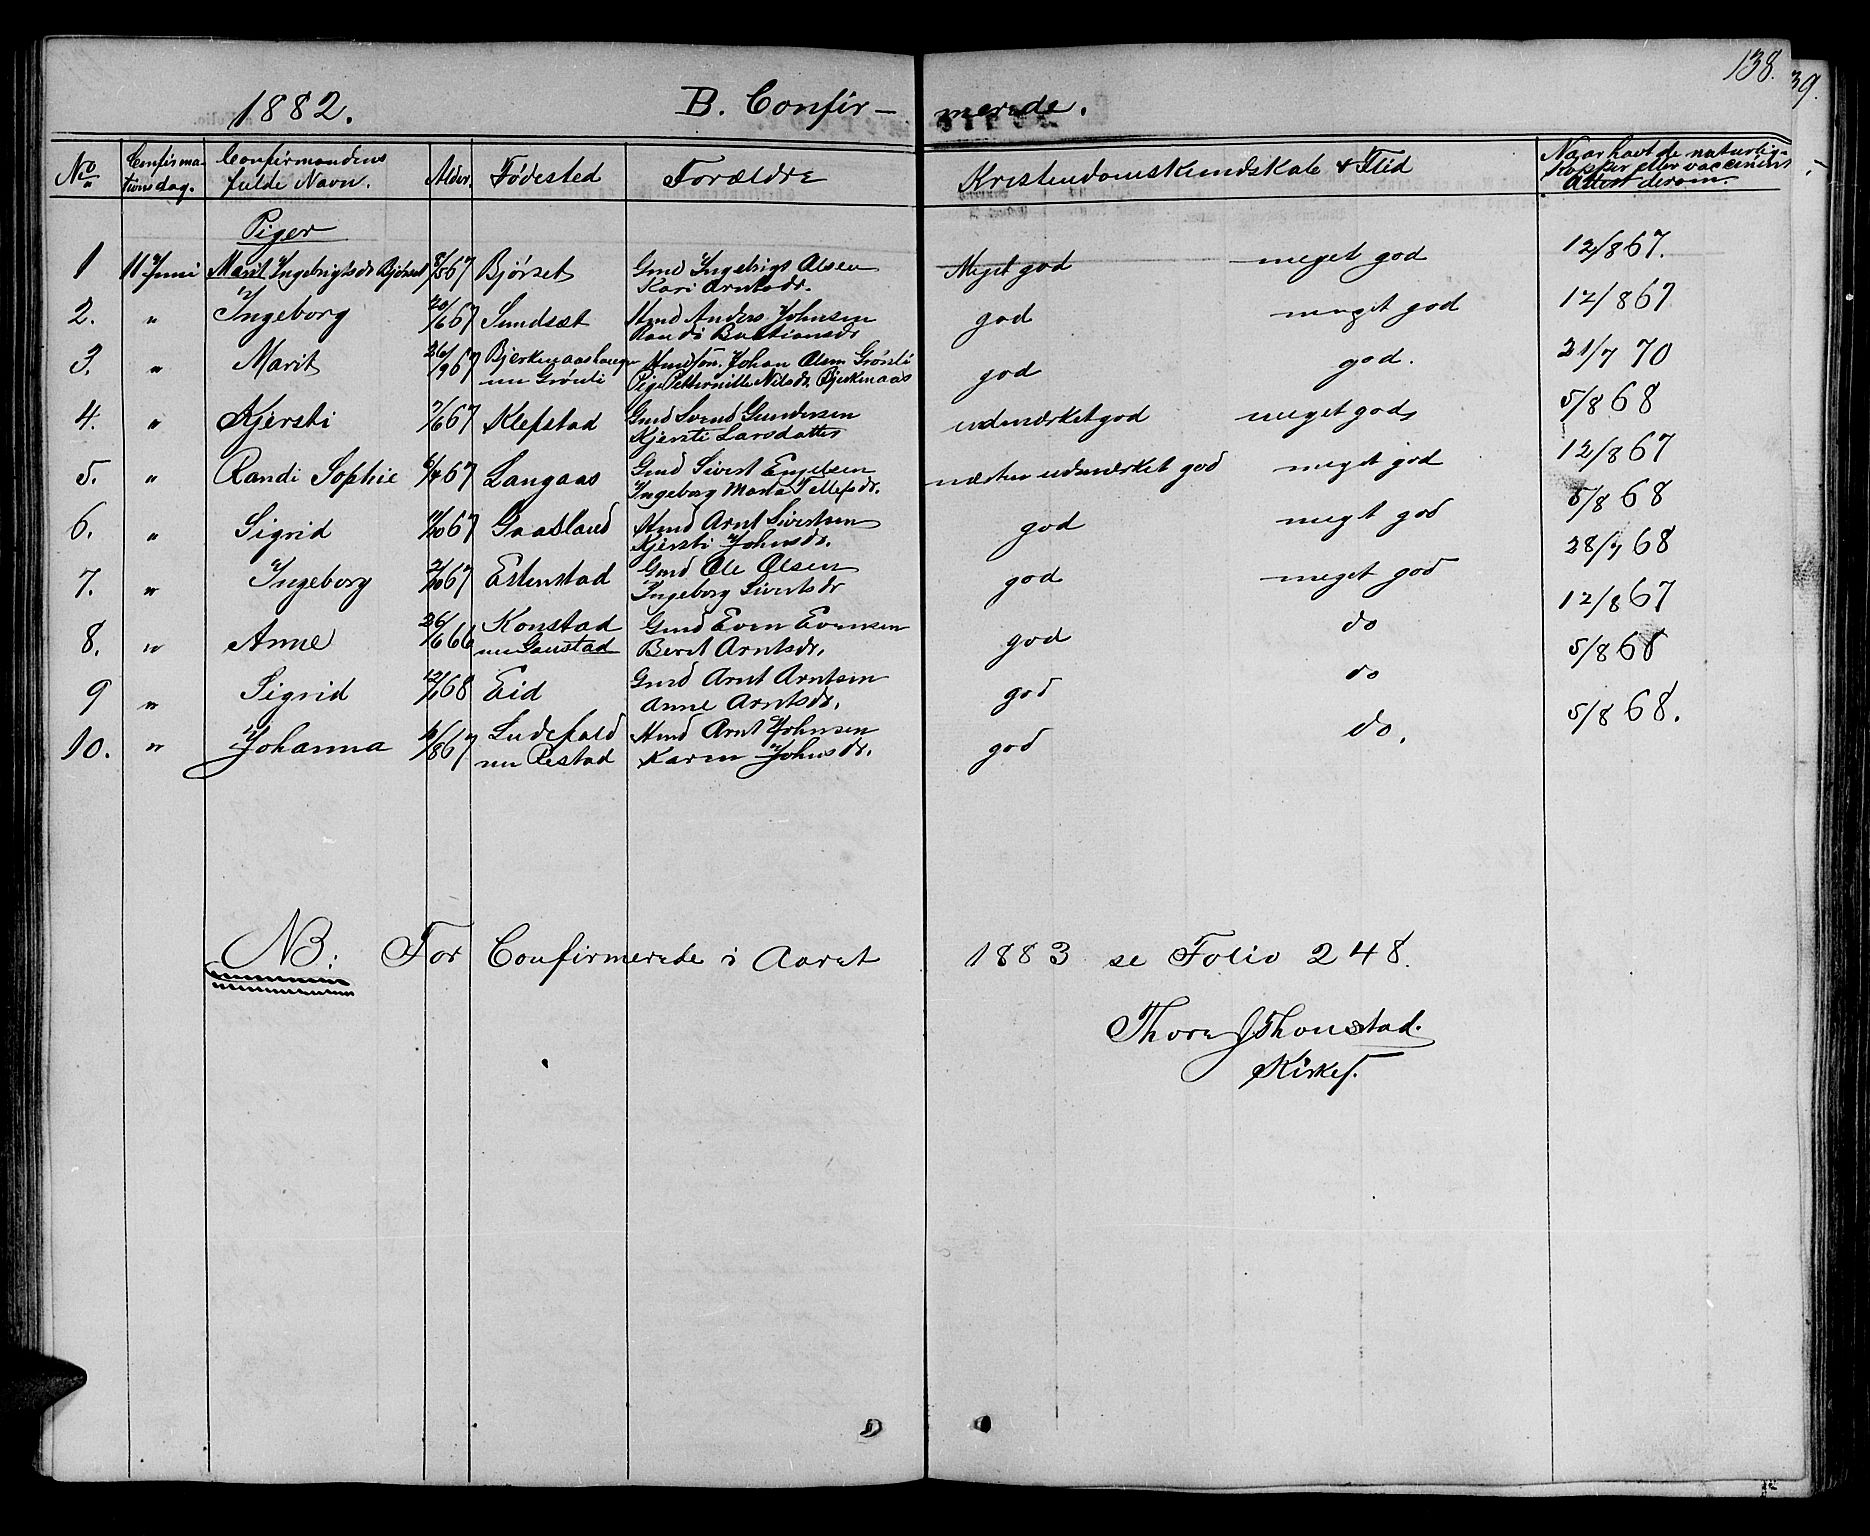 138.
39.
1882. B. Confir- merede.
No Confirma- tionsdag. Confirmandens fulde Navn. Alder. Fødested Forældre Kristendomskundskab & Flid Naar havt de naturlig- Kopper eller vaccineret Attest derom.
Piger
1 11 Juni Marit Ingebrigtsdr Bjørset 8/5 67 Bjørset Gmd Ingebrigt Olsen Meget god meget god 12/8 67.
Kari Arntsdr.
2. " Ingeborg 20/6 67 Sundsæt Hmd Anders Johnsen god meget god 12/8 67
Randi Bastiansdr
3. " Marit 26/9 67 Bjerkenaashaugen Johan Olsen Grønli god god. 21/7 70
nu Grønli Pige Petternille Nilsdr. Bjerkenaas
4. " Kjersti 7/6 67 Klefstad Gmd Svend Gundersen udmærket god meget god 5/8 68
Kjersti Larsdatter
5. " Randi Sophie 6/4 67 Langaas Gmd Sivert Engelsen næsten udmærket god meget god 12/8 67
Ingeborg Marta Tellefsdr.
6. " Sigrid 11/10 67 Gaasland Hmd Arnt Sivertsen god meget god 5/8 68
Kjersti Johnsdr.
7. " Ingeborg 2/10 67 Estenstad Gmd Ole Olsen god meget god 28/7 68
Ingeborg Sivertsdr
8. " Anne 26/6 66 Konstad Gmd Even Evensen god do 12/8 67
nu Gaustad Berit Arntsdr.
9 " Sigrid 12/1 68 Eid Gmd Arnt Arntsen god do 5/8 68
Anne Arntsdr.
10. " Johanna 16/8 67 Ludefald Hmd Arnt Johnsen god do. 5/8 68.
nu Restad Karen Johnsdr.
NB: For Confirmerede i Aaret 1883 se Folio 248.
Thore J Thonstad.
Kirkes.